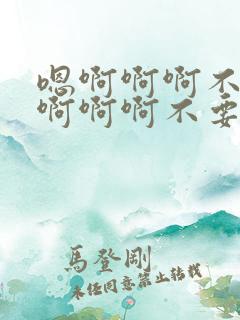 嗯啊啊啊不
啊啊啊不要
馬登剛
未经同意禁止转载